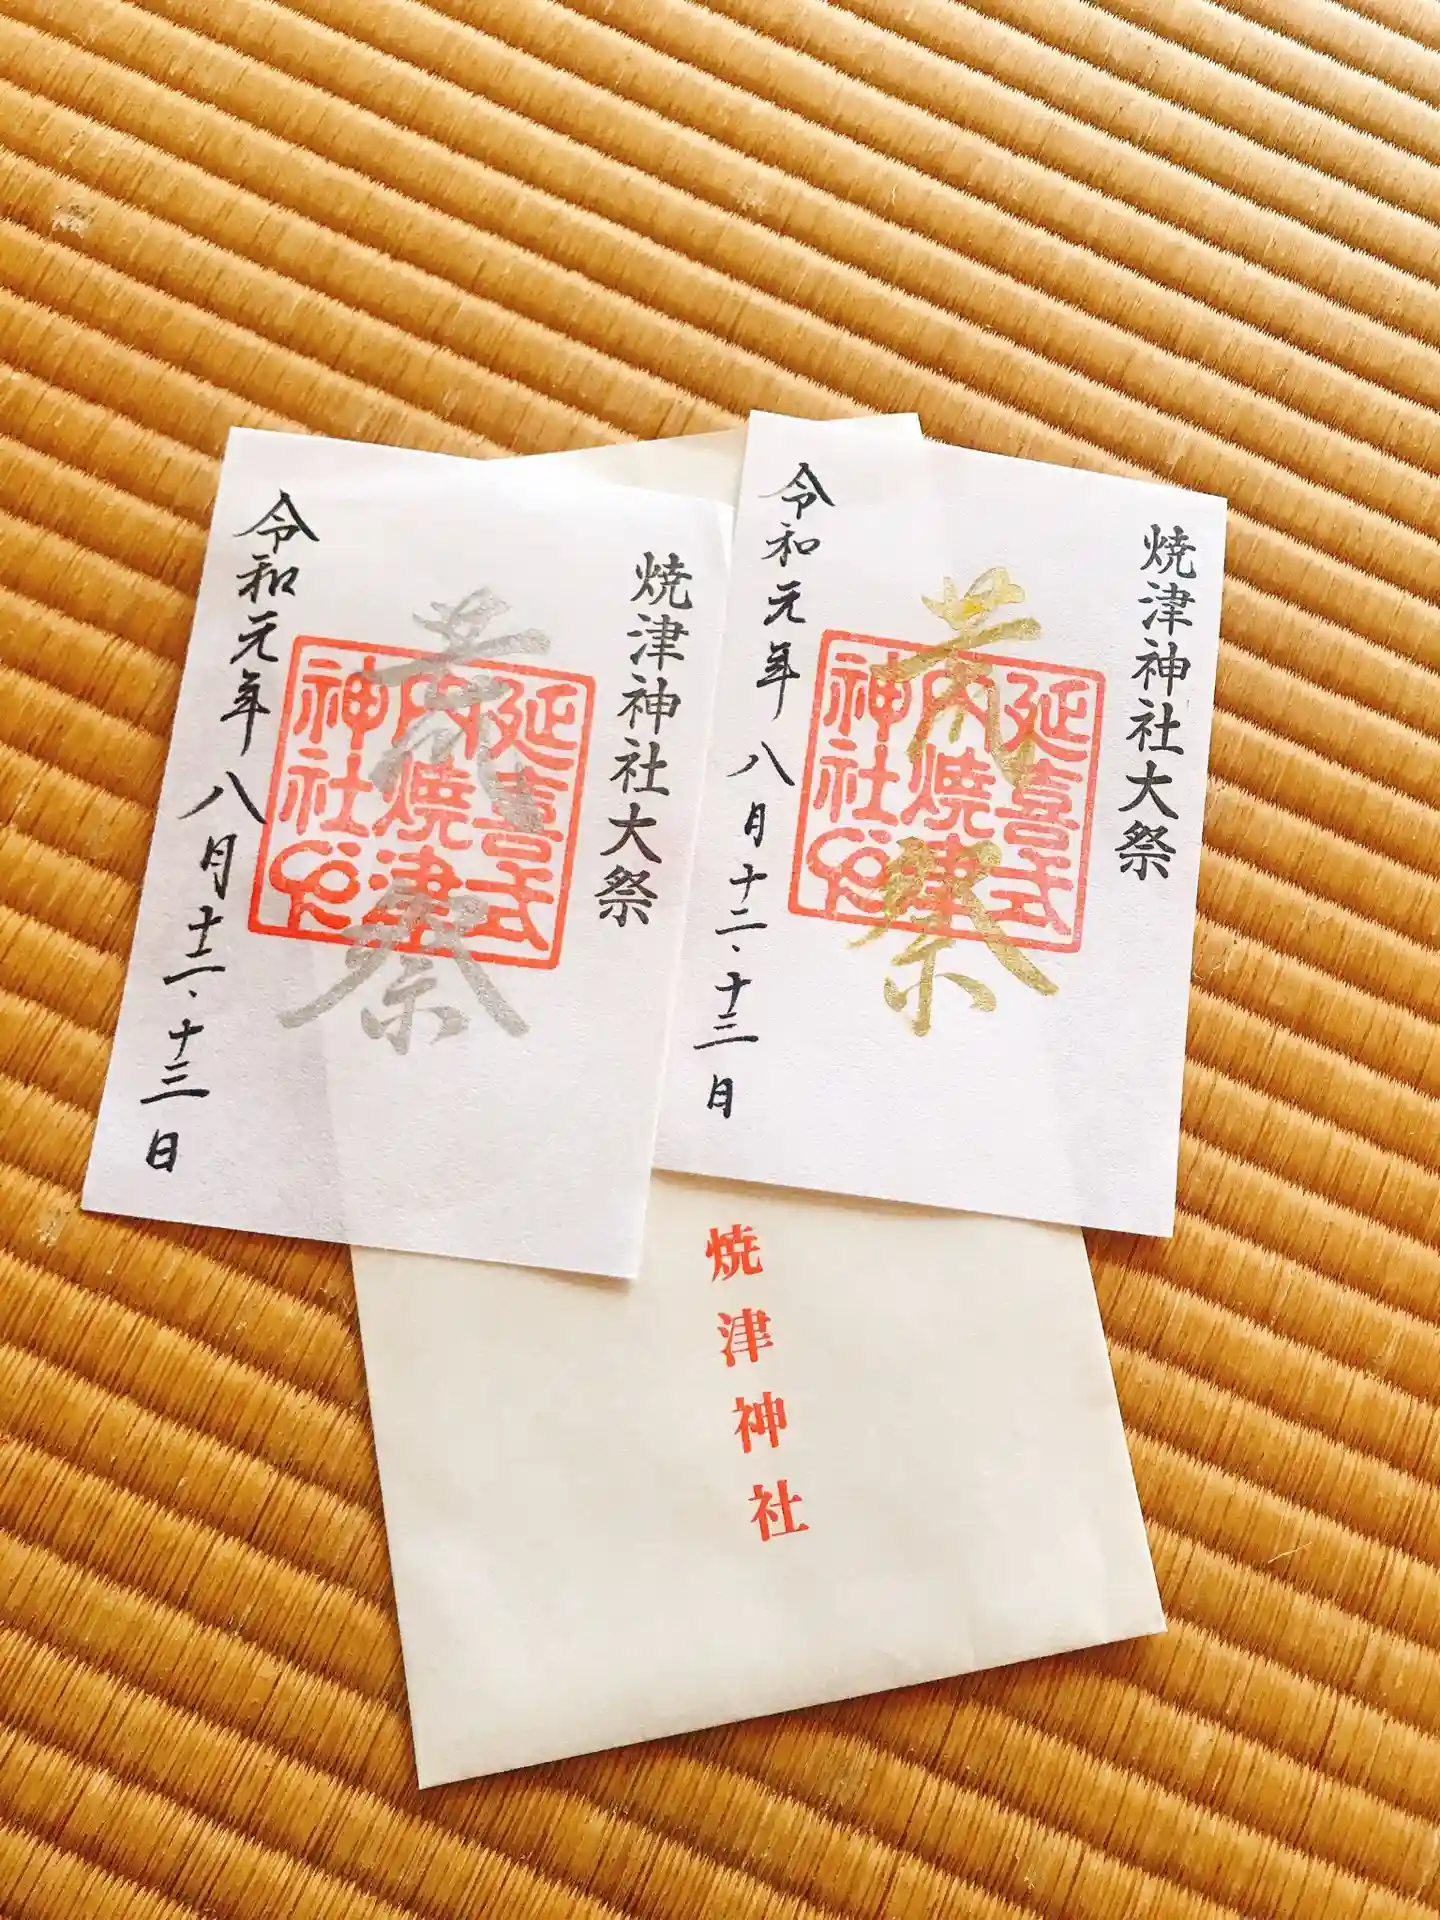 焼津神社大祭
荒祭
延喜式
内焼津
神社
令和元年八月十二、十三日
焼津神社大祭
荒祭
延喜式
内焼津
神社
令和元年八月十二、十三日
焼津神社